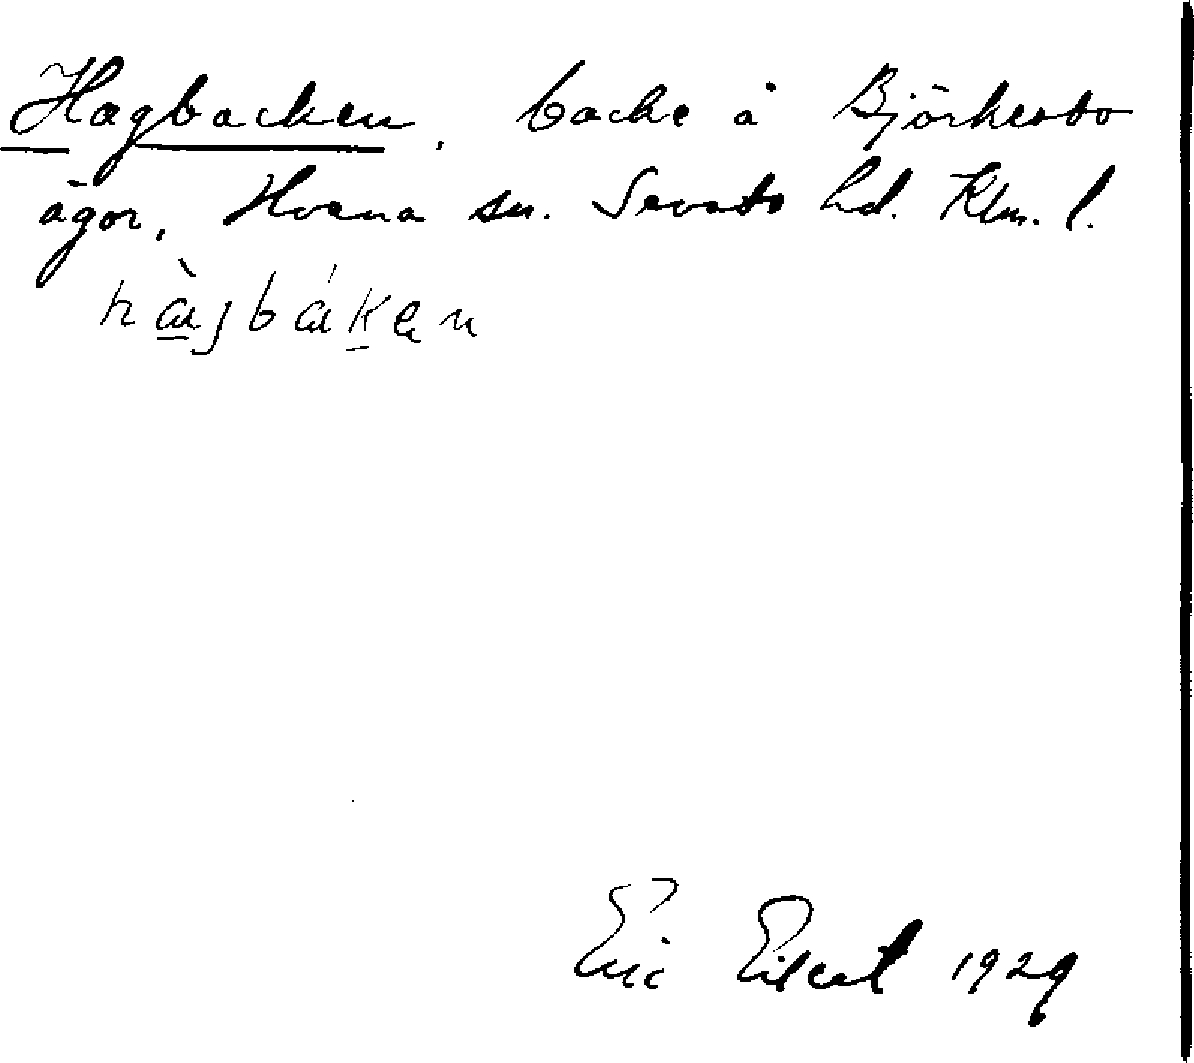 Hagbacken, backe å Björkesbo
ägor, Hvena sn. Sevede hd. Klm. l.
hàgbáken
Eric Elicat 1929